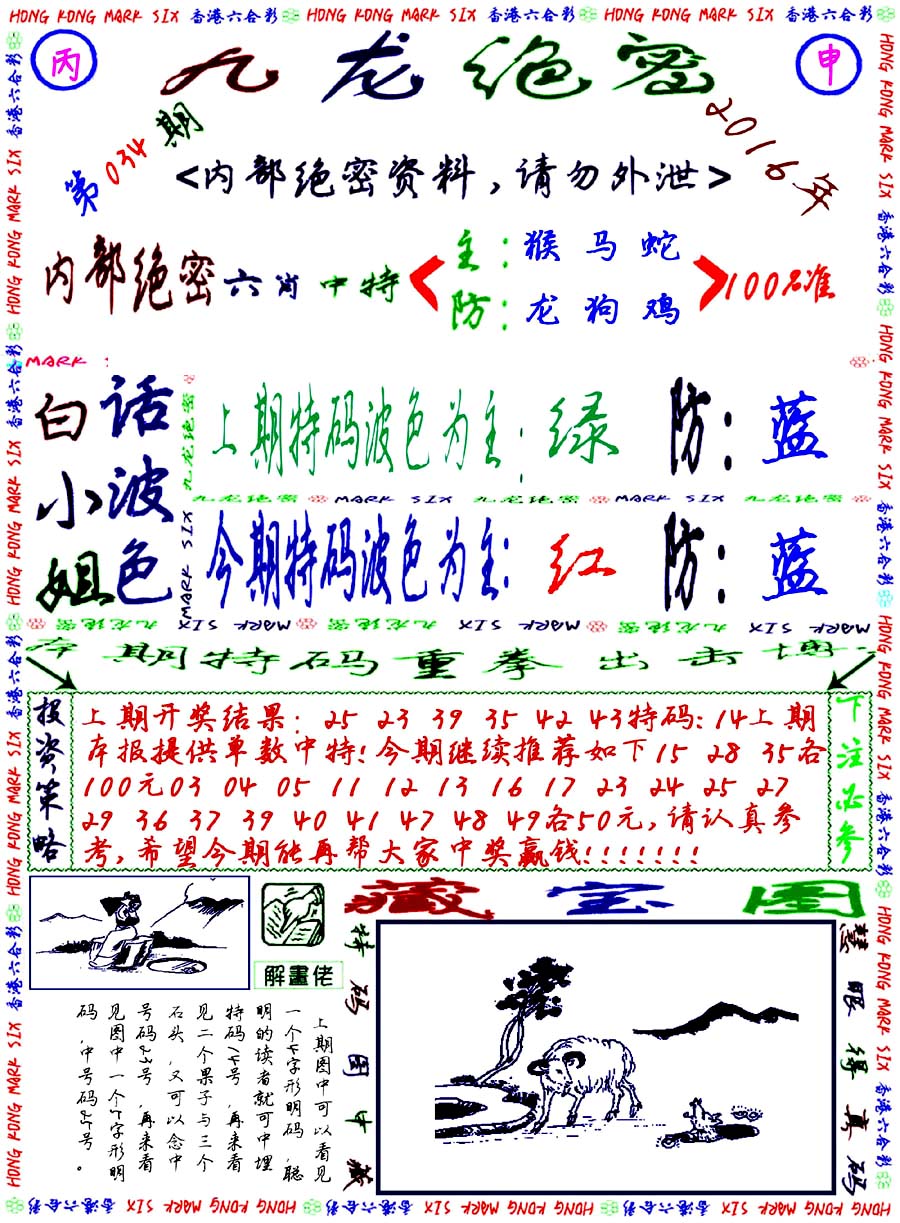 HONG KONG MARK SIX 香港六合彩 HONG KONG MARK SIX 香港六合彩 HONG KONG MARK SIX 香港六合彩
丙
九龙绝密
申
第034期
2016年
<内部绝密资料,请勿外泄>
内部绝密六肖中特
主:猴马蛇
防:龙狗鸡
100%准
MARK :
白话
小波
姐色
上期特码波色为主:绿 防:蓝
九龙绝密 MARK SIX 九龙绝密 MARK SIX 九龙绝密
今期特码波色为主:红 防:蓝
MARK SIX 九龙绝密 MARK SIX 九龙绝密 MARK SIX 九龙绝密
本期特码重拳出击博
投资策略
上期开奖结果: 25 23 39 35 42 43特码:14上期
本报提供单数中特!今期继续推荐如下15 28 35各
100元03 04 05 11 12 13 16 17 23 24 25 27
29 36 37 39 40 41 47 48 49各50元,请认真参
考,希望今期能再帮大家中奖赢钱!!!!!!!
下注必参
解畫佬
藏宝图
特码图中藏
慧眼得真码
上期图中可以看见
一个4字形明码,聪
明的读者就可中埋
特码14号,再来看
见二个果子与三个
石头,又可以念中
号码23号,再来看
见图中一个5字形明
码,中号码25号。
HONG KONG MARK SIX 香港六合彩 HONG KONG MARK SIX 香港六合彩 HONG KONG MARK SIX 香港六合彩